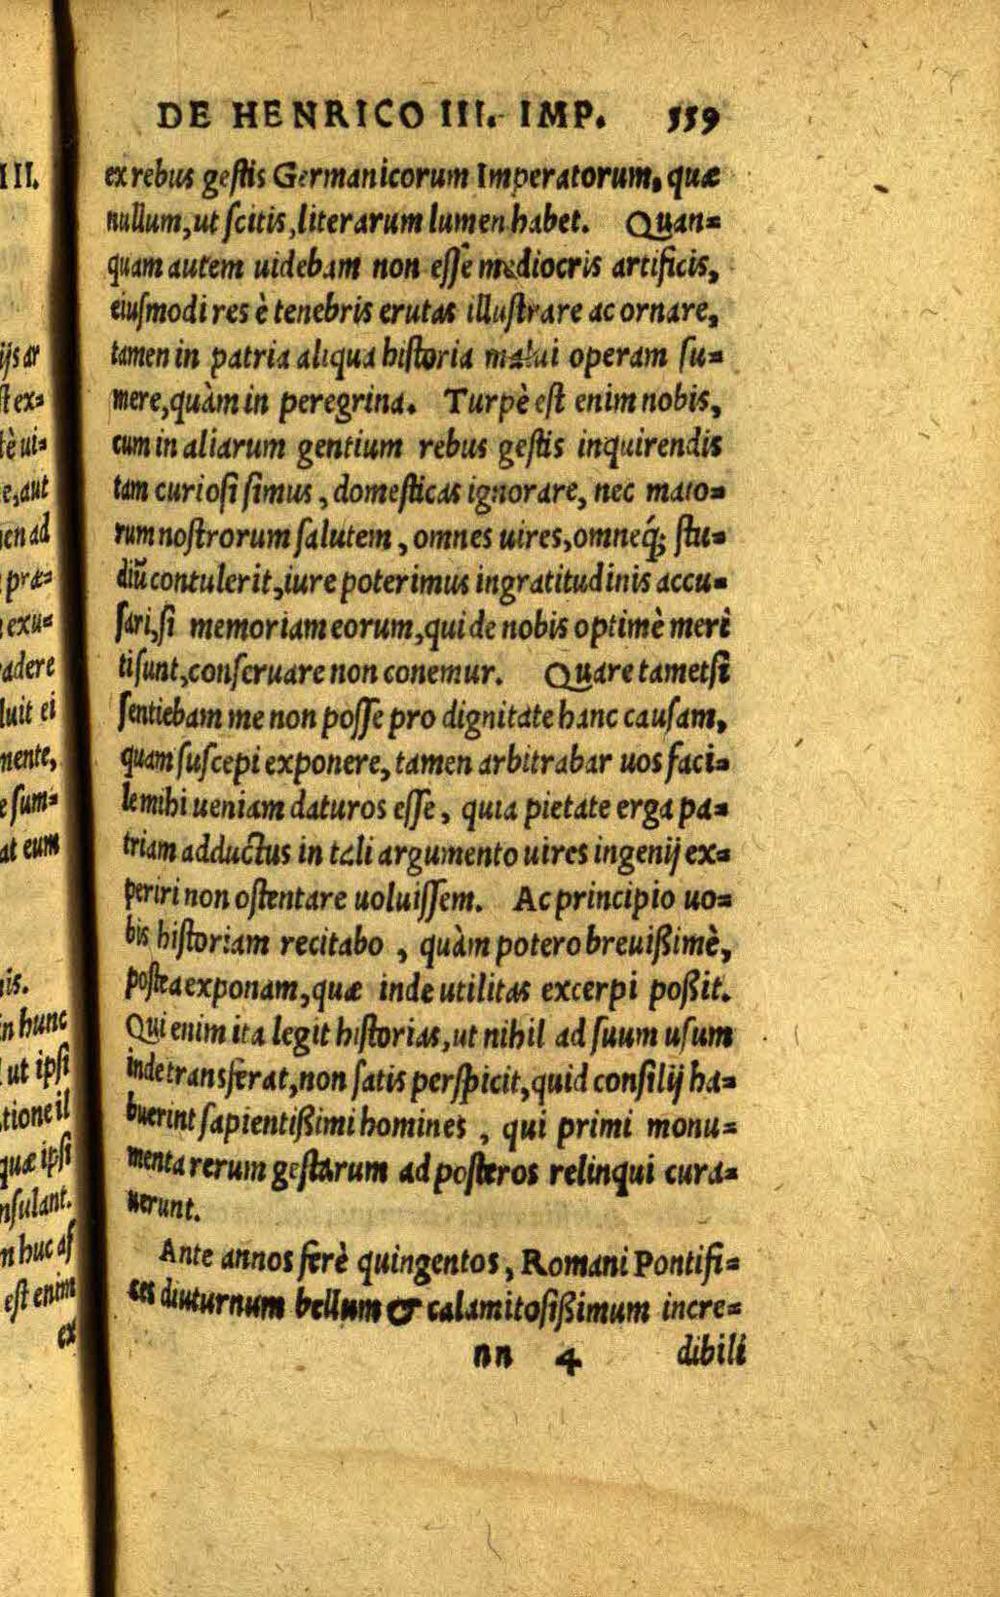 DE HENRICO III. IMP. 559
ex rebus gestis Germanicorum Imperatorum, quæ
nullum, ut scitis, literarum lumen habet. Quan=
quam autem uidebam non esse mediocris artificis,
eiusmodi res è tenebris erutas illustrare ac ornare,
tamen in patria aliqua historia malui operam su=
mere, quàm in peregrina. Turpè est enim nobis,
cum in aliarum gentium rebus gestis inquirendis
tam curiosi simus, domesticas ignorare, nec maio=
rum nostrorum salutem, omnes uires, omneq́; stu=
diũ contulerit, iure poterimus ingratitudinis accu=
sari, si memoriam eorum, qui de nobis optimè meri
ti sunt, conseruare non conemur. Quare tametsi
sentiebam me non posse pro dignitate hanc causam,
quam suscepi exponere, tamen arbitrabar uos faci=
le mihi ueniam daturos esse, quia pietate erga pa=
triam adductus in tali argumento uires ingenij ex=
periri non ostentare uoluissem. Ac principio uo=
bis historiam recitabo, quàm potero breuißimè,
postea exponam, quæ inde utilitas excerpi poßit.
Qui enim ita legit historias, ut nihil ad suum usum
inde transferat, non satis perspicit, quid consilij ha=
buerint sapientißimi homines, qui primi monu=
menta rerum gestarum ad posteros relinqui cura=
uerunt.
Ante annos ferè quingentos, Romani Pontifi=
ces diuturnum bellum & calamitosißimum incre=
nn 4 dibili
III.
ijs ar
st ex=
tè ui=
e, aut
en ad
præ=
exu=
adere
luit ei
mente,
e sum=
at eum
is.
in hunc
ut ipsi
tione il
quæ ipsi
nsulant.
n huc af
est enim
ex